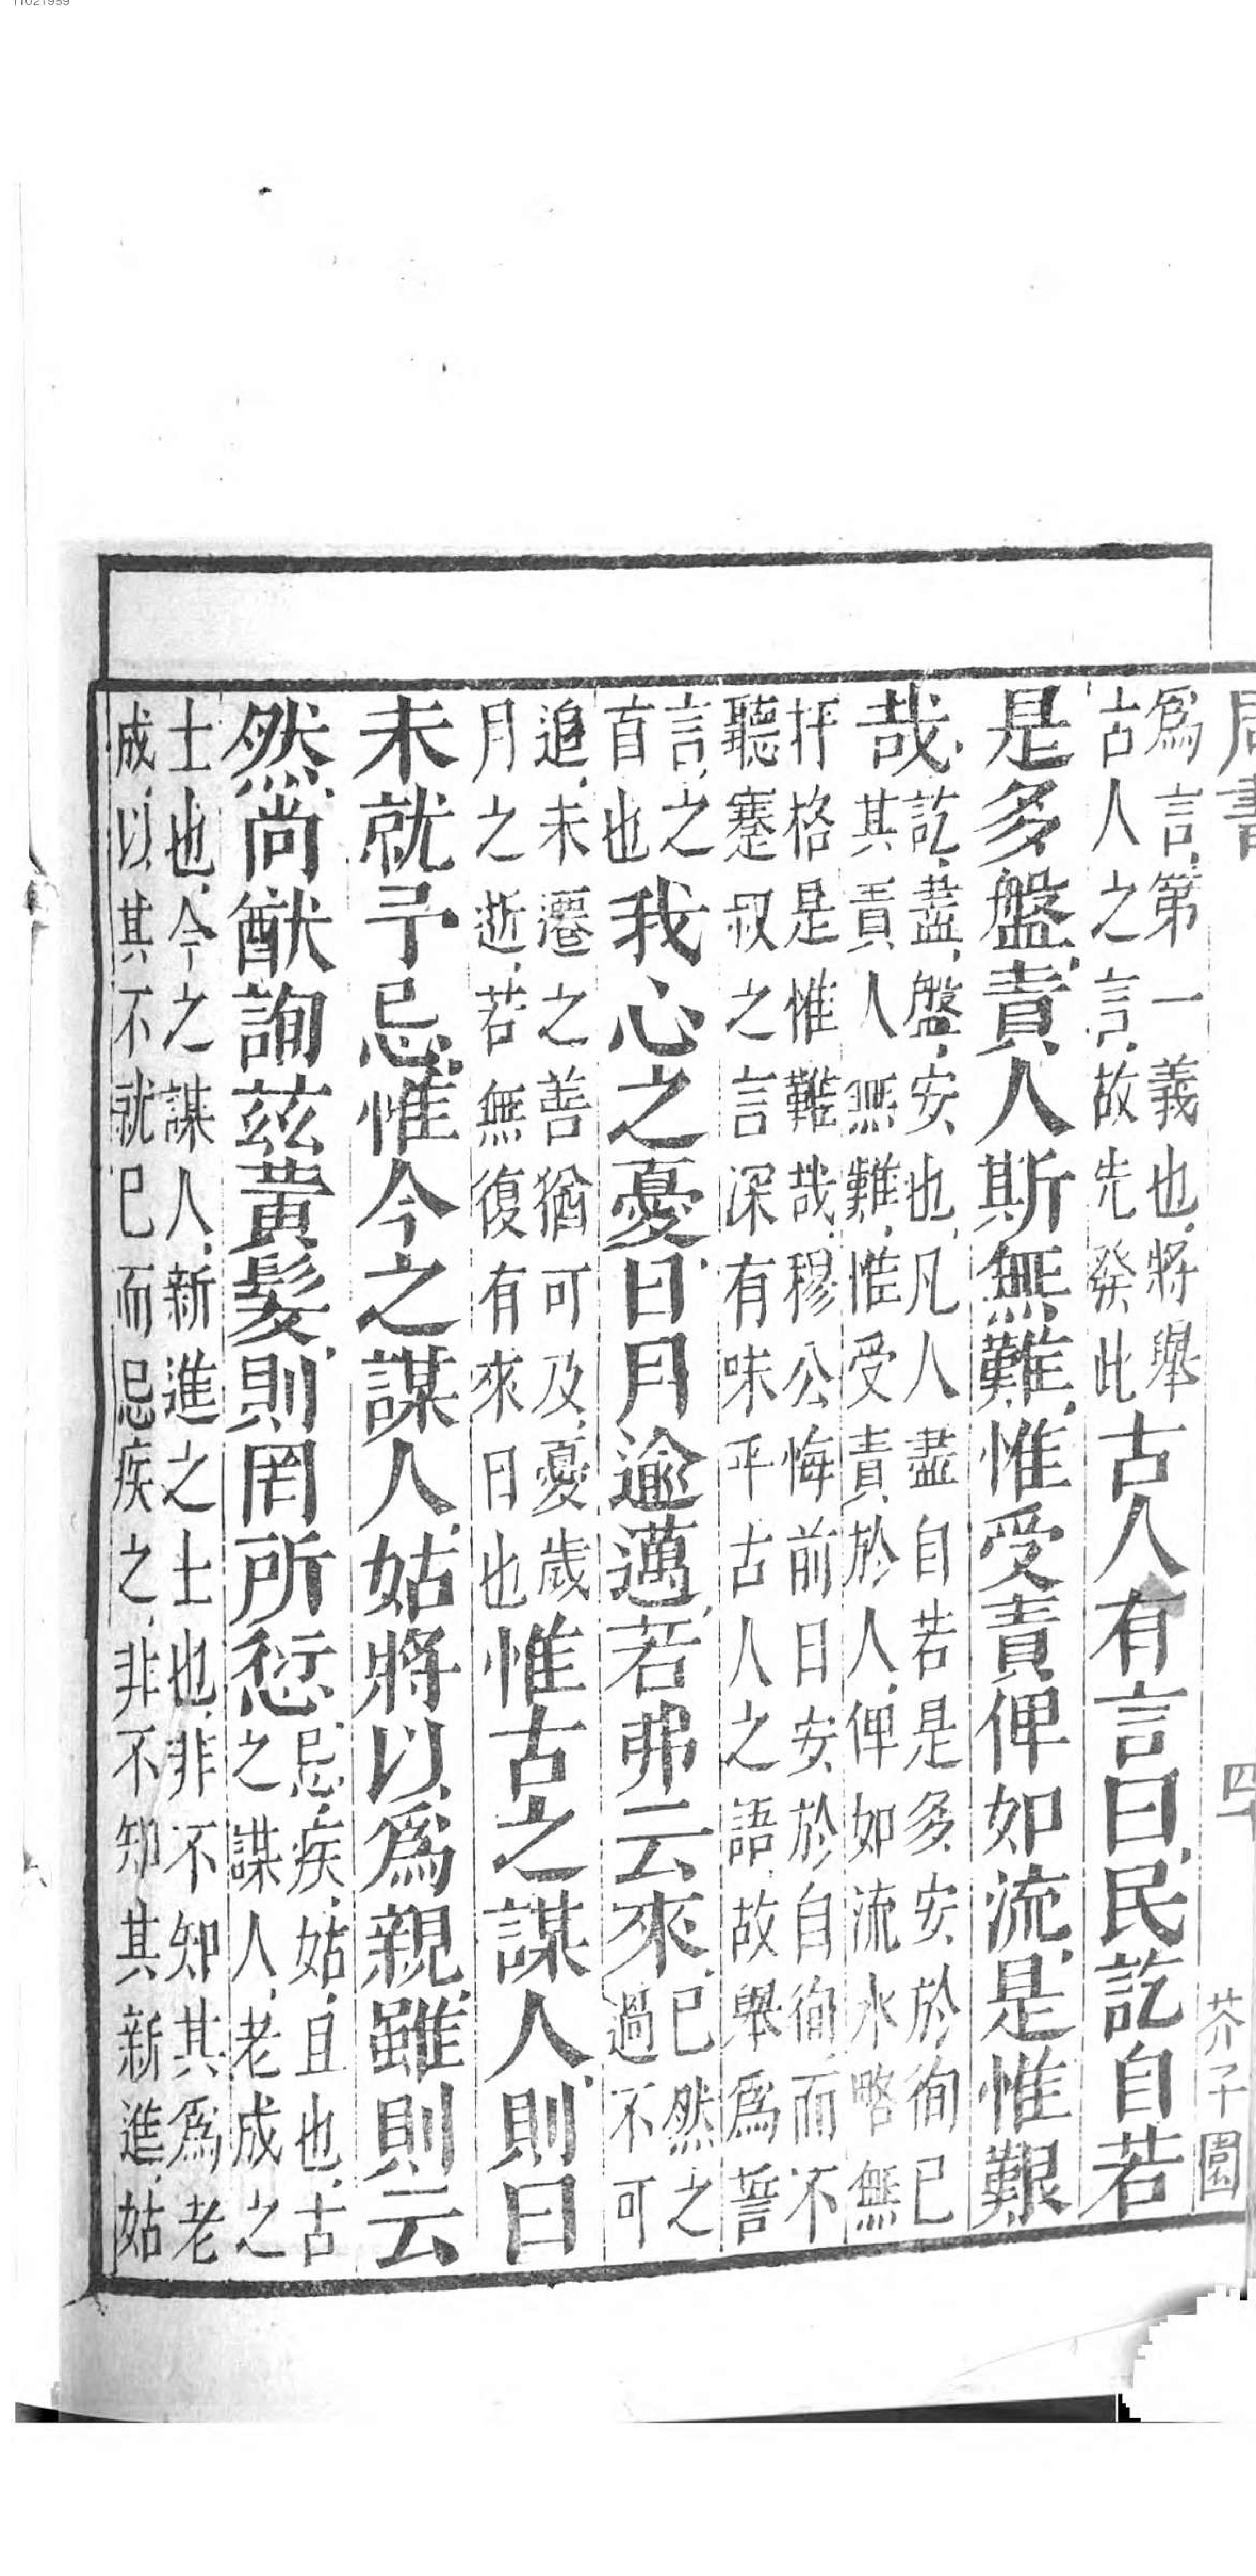 11021959
周書
四
芥子園
爲言、第一義也、將舉
古人之言、故先發此
古人有言曰、民訖自若
是多盤、責人斯無難、惟受責俾如流、是惟艱
哉、
訖、盡、盤、安也、凡人盡自若是多安於徇己
其責人無難、惟受責於人、俾如流水略無
扞格是惟難哉、穆公悔前日安於自徇、而不
聽蹇叔之言深有味乎古人之語、故舉爲誓
言、之
首也
我心之憂、日月逾邁、若弗云來、
已然之
過不可
追、未遷之善猶可及、憂歲
月之逝、若無復有來日也
惟古之謀人、則曰
未就予忌、惟今之謀人、姑將以爲親、雖則云
然、尚猷詢茲黃髮、則罔所愆
忌、疾、姑、且也、古
之謀人、老成之
士也、今之謀人、新進之士也、非不知其爲老
成、以其不就已而忌疾之、非不知其新進、姑